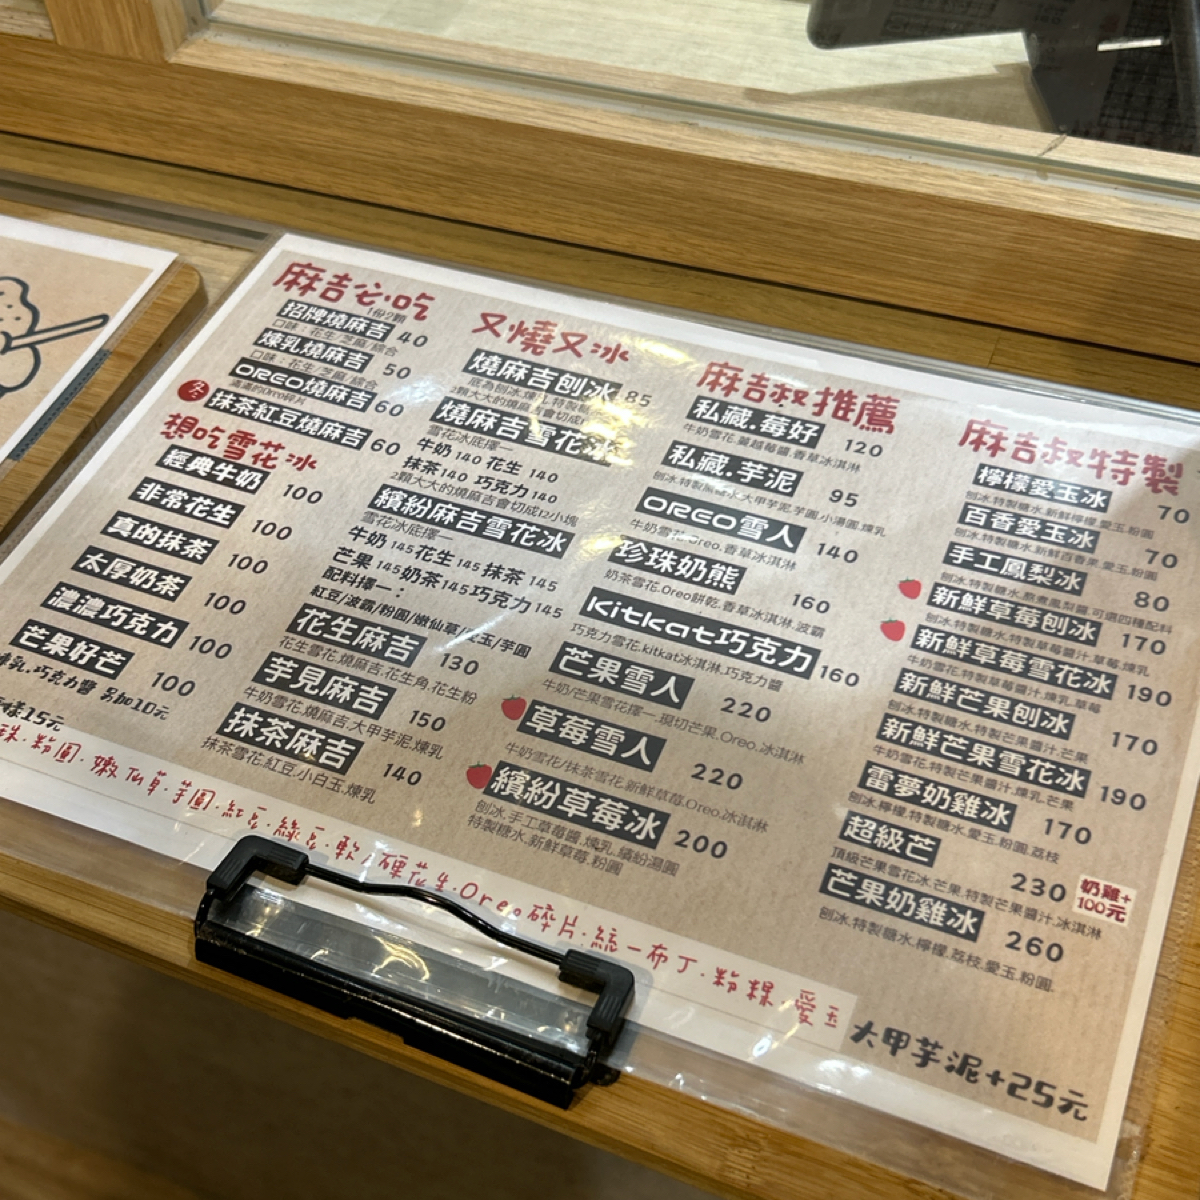 麻吉必吃
1份2顆
招牌燒麻吉 40
口味：花生/芝麻/綜合
煉乳燒麻吉 50
口味：花生/芝麻/綜合
OREO燒麻吉 60
滿滿的Oreo碎片
冬 抹茶紅豆燒麻吉 60
想吃雪花冰
經典牛奶 100
非常花生 100
真的抹茶 100
太厚奶茶 100
濃濃巧克力 100
芒果好芒 100
煉乳.巧克力醬 另加10元
樣15元
又燒又冰
燒麻吉刨冰 85
底為刨冰.煉乳.特製
2顆大大的燒麻吉會切成
燒麻吉雪花冰
雪花冰底擇一
牛奶 140 花生 140
抹茶 140 巧克力 140
2顆大大的燒麻吉會切成12小塊
繽紛麻吉雪花冰
雪花冰底擇一
牛奶 145 花生 145 抹茶 145
芒果 145 奶茶 145 巧克力 145
配料擇一：
紅豆/波霸/粉圓/嫩仙草/愛玉/芋圓
花生麻吉 130
花生雪花.燒麻吉.花生角.花生粉
芋見麻吉 150
牛奶雪花.燒麻吉.大甲芋泥.煉乳
抹茶麻吉 140
抹茶雪花.紅豆.小白玉.煉乳
麻吉叔推薦
私藏.莓好 120
牛奶雪花.蔓越莓醬.香草冰淇淋
私藏.芋泥 95
刨冰.特製黑糖水.大甲芋泥.芋圓.小湯圓.煉乳
OREO雪人 140
牛奶雪花.Oreo.香草冰淇淋
珍珠奶熊 160
奶茶雪花.Oreo餅乾.香草冰淇淋.波霸
KitKat巧克力 160
巧克力雪花.kitkat冰淇淋.巧克力醬
芒果雪人 220
牛奶/芒果雪花擇一.現切芒果.Oreo.冰淇淋
草莓雪人 220
牛奶雪花/抹茶雪花.新鮮草莓.Oreo.冰淇淋
繽紛草莓冰 200
刨冰.手工草莓醬.煉乳.繽紛湯圓
特製糖水.新鮮草莓.粉圓
麻吉叔特製
檸檬愛玉冰 70
刨冰.特製糖水.新鮮檸檬.愛玉.粉圓
百香愛玉冰 70
刨冰.特製糖水.新鮮百香果.愛玉.粉圓
手工鳳梨冰 80
刨冰.特製糖水.熬煮鳳梨醬.可選四種配料
新鮮草莓刨冰 170
刨冰.特製糖水.特製草莓醬汁.草莓.煉乳
新鮮草莓雪花冰 190
牛奶雪花.特製草莓醬汁.煉乳.草莓
新鮮芒果刨冰 170
刨冰.特製糖水.特製芒果醬汁.芒果
新鮮芒果雪花冰 190
牛奶雪花.特製芒果醬汁.煉乳.芒果
雷夢奶雞冰 170
刨冰.檸檬.特製糖水.愛玉.粉圓.荔枝
超級芒 230
頂級芒果雪花冰.芒果.特製芒果醬汁.冰淇淋
奶雞+
100元
芒果奶雞冰 260
刨冰.特製糖水.檸檬.荔枝.愛玉.粉圓.
珠.粉圓.嫩仙草.芋圓.紅豆.綠豆.軟/硬花生.Oreo碎片.統一布丁.粉粿.愛玉
大甲芋泥+25元